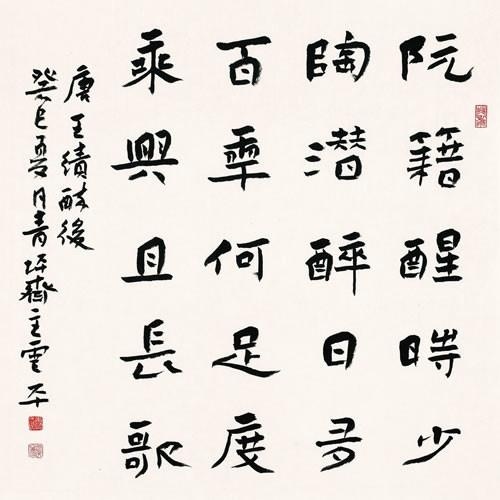 阮籍醒時少
陶潛醉日多
百年何足度
乘興且長歌
唐王績醉後
癸巳夏月青坪齋主雲平